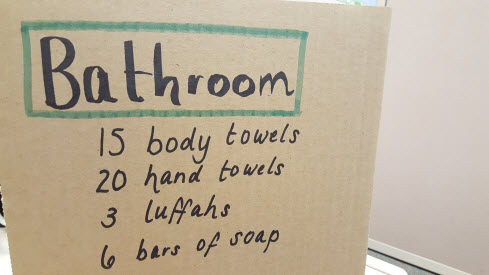 Bathroom
15 body towels
20 hand towels
3 luffahs
6 bars of soap